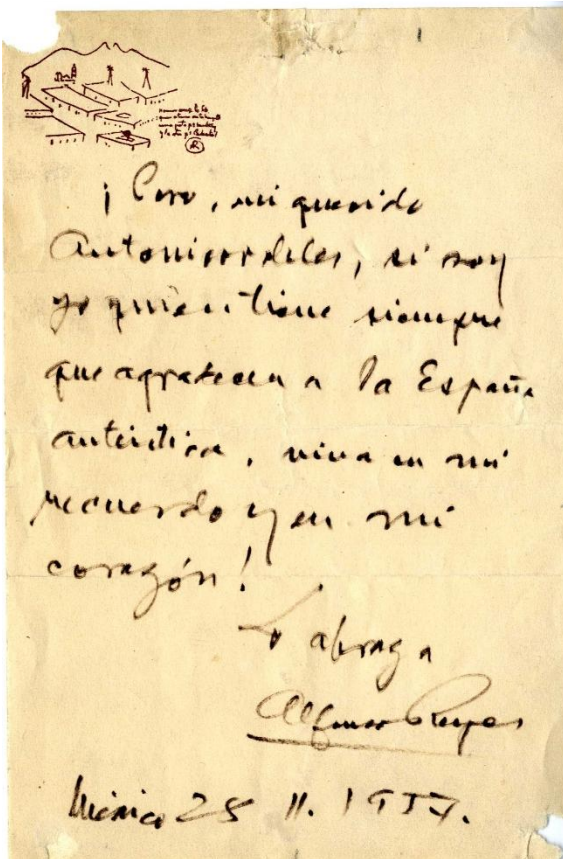 ¡Pero, mi querido
Antoniorrobles, si soy
yo quien tiene siempre
que agradecer a la España
auténtica, viva en mi
recuerdo y en mi
corazón!
Lo abraza
Alfonso Reyes
México 28 II. 1957.